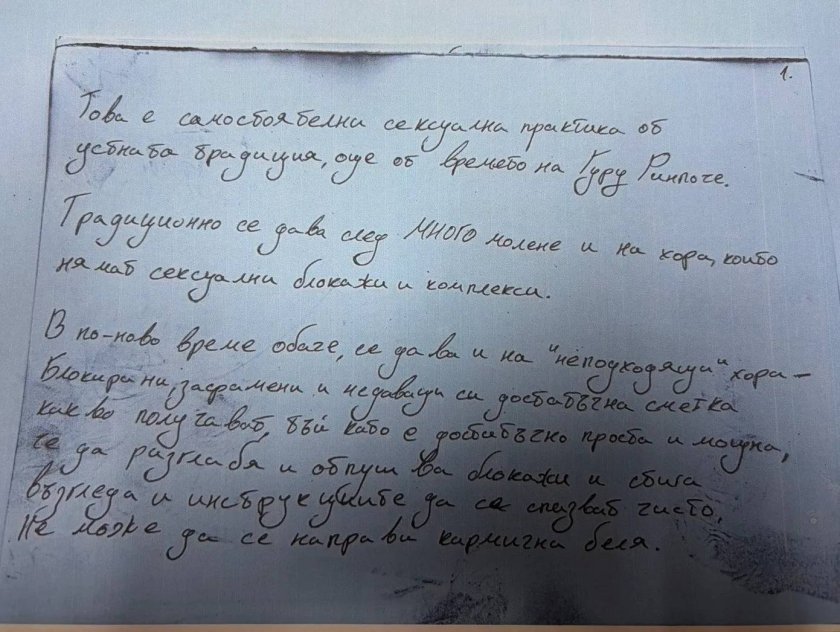 1.
Това е самостоятелна сексуална практика от
устната традиция, още от времето на Гуру Ринпоче.
Традиционно се дава след МНОГО молене и на хора, които
нямат сексуални блокажи и комплекси.
В по-ново време обаче, се дава и на "неподходящи" хора -
Блокирани, засрамени и недаващи си достатъчна сметка
какво получават, тъй като е достатъчно проста и мощна,
че да разглабя и отпушва блокажи и стига
възгледа и инструкциите да се спазват чисто,
не може да се направи кармична беля.